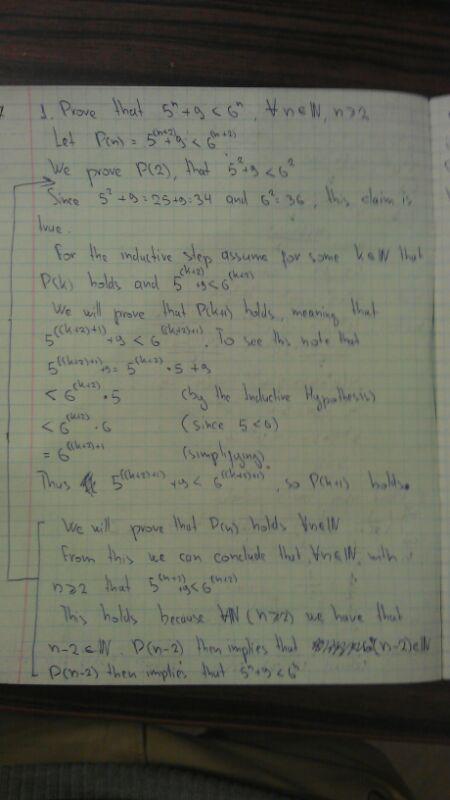 1. Prove that 5^n + 9 < 6^n, ∀n∈ℕ, n≥2
Let P(n) = 5^(n+2) + 9 < 6^(n+2)
We prove P(2), that 5^2 + 9 < 6^2
Since 5^2 + 9 = 25 + 9 = 34 and 6^2 = 36, this claim is
true.
For the inductive step assume for some k∈ℕ that
P(k) holds and 5^(k+2) + 9 < 6^(k+2)
We will prove that P(k+1) holds, meaning that
5^((k+2)+1) + 9 < 6^((k+2)+1). To see this note that
5^((k+2)+1) + 9 = 5^(k+2) · 5 + 9
< 6^(k+2) · 5 (by the Inductive Hypothesis)
< 6^(k+2) · 6 (since 5 < 6)
= 6^((k+2)+1 (simplifying).
Thus 5^((k+2)+1) + 9 < 6^((k+2)+1), so P(k+1) holds.
We will prove that P(n) holds ∀n∈ℕ
From this we can conclude that, ∀n∈ℕ, with
n≥2 that 5^(n+2) + 9 < 6^(n+2)
This holds because ∀ℕ (n≥2) we have that
n-2∈ℕ. P(n-2) then implies that (n-2)∈ℕ
P(n-2) then implies that 5^n + 9 < 6^n